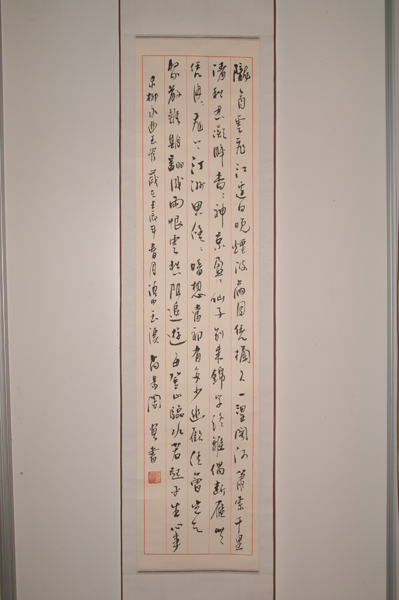 隴首雲飛江邊日晚煙波滿目凭欄久一望關河蕭索千里
清秋忍凝眸杳〻神京盈〻仙子別來錦字終難偶斷雁無
凭冉〻飛下汀洲思悠〻暗想當初有多少幽歡佳會豈知
聚散難期翻成雨恨雲愁阻追遊每登山臨水惹起平生心事
柳永曲玉管歲在壬辰年春月書